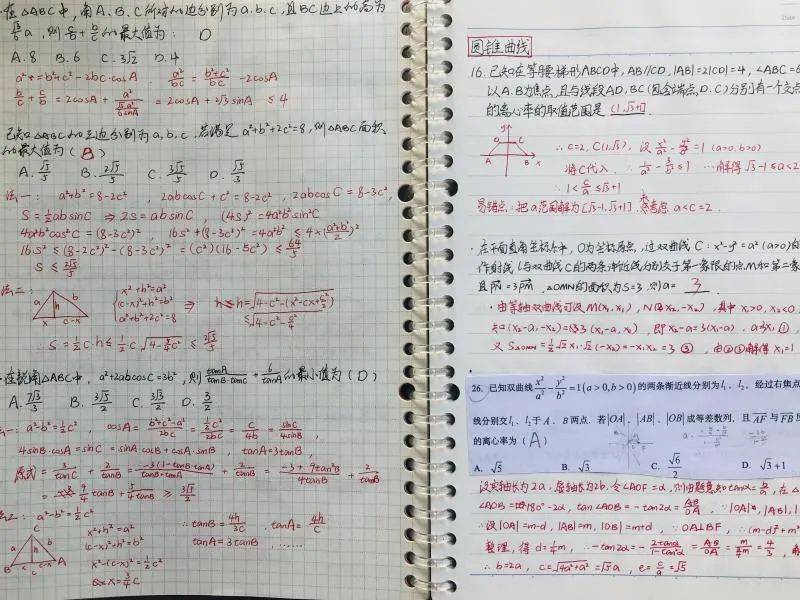 在△ABC中,角A.B.C所对的边分别为a.b.c,且BC边上的高为
√3/6 a,则 c/b + b/c 的最大值为: D
A. 8 B. 6 C. 3√2 D. 4
a²=b²+c²-2bc·cosA . a²/bc = (b²+c²)/bc -2cosA
b/c + c/b = 2cosA + = 2cosA+2√3sinA ≤ 4
已知△ABC的三边分别为a,b,c,若满足 a²+b²+2c²=8,则△ABC面积
的最大值为( B )
A. √5/5 B. 2√5/5 C. 3√5/5 D. √5/3
法一: a²+b²=8-2c² 2abcosC+c²=8-2c², 2abcosC=8-3c²,
S=½absinC ⇒ 2S=absinC, (4S)²=4a²b²sin²C
4a²b²cos²C=(8-3c²)², 16S²+(8-3c²)²=4a²b² ≤ 4×((a²+b²)/2)²
16S² ≤ (8-2c²)²-(8-3c²)² = (c²)(16-5c²) ≤ 64/5
S ≤ 2√5/5
法二:
a h b
x c-x
x²+h²=a²
(c-x)²+h²=b²
a²+b²+2c²=8
⇒
∴ S=½c·h ≤ ½·c·√(4-5/4c²) ≤ 2√5/5
·在锐角△ABC中, a²+2abcosC=3b²,则 tanA/(tanB·tanC) + 6/tanA 的最小值为( D )
A. 7√3/3 B. 3√5/2 C. 3√3/2 D. 3/2
法一: a²-b²=½c², cosA=(b²+c²-a²)/2bc = ½c²/2bc = c/4b = sinC/4sinB ,
4sinB·cosA=sinC=sinA·cosB+cosA·sinB, tanA=3tanB,
原式= 3/tanC + 2/tanB = -3(1-tanA·tanB)/(tanA+tanB) + 2/tanB = (-3+9tan²B)/4tanB + 2/tanB
法2: a²-b²=½c²
C
A
B
x²+h²=a²
(c-x)²+h²=b²
x²-(c-x)²=½c²
x=¾c
∴ tanB=4h/3c, tanA=4h/c
tanA=3tanB, ……
圆锥曲线
16. 已知在等腰梯形ABCD中, AB//CD, |AB|=2|CD|=4, ∠ABC=6
以A.B为焦点,且与线段AD,BC(包含端点,D.C)分别有一个交点
的离心率的取值范围是 (1,√3+1].
y
D C
A O B x
∴ C=2, C(1,√3), 设 x²/a² - y²/b² =1 (a>0,b>0)
将C代入. ∴ 1/a² - 3/b² ≤1 …解得 √3-1≤a<2
∴ 1< c/a ≤√3+1
易错点:把a范围解为[√3-1,√3+1], 未考虑 a<c=2.
·在平面直角坐标系中,O为坐标原点,过双曲线 C: x²-y²=a² (a>0)
作射线l与双曲线C的两条渐近线分别交于第一象限的点M和第二象
且 PN=3PM, △OMN的面积为S=3,则a= 3 .
·由等轴双曲线可设M(x₁,x₁), N(x₂,-x₂), 其中x₁>0,x₂<0
知 (x₂-a,-x₂)=3(x₁-a,x₁), 即 x₂-a=3(x₁-a),
又 S△OMN=½√2x₁·√2(-x₂)=-x₁x₂=3 ③, 由②③解得x₁=1
26. 已知双曲线 x²/a² - y²/b² =1(a>0,b>0)的两条渐近线分别为l₁、l₂, 经过右焦点
线分别交l₁、l₂于A、B两点. 若|OA|、|AB|、|OB|成等差数列, 且AF与FB
的离心率为( A )
A. √5 B. √3 C. √6/2 D. √3+1
设实轴长为2a,虚轴长为2b,令∠AOF=α,则由题意知tanα=b/a, 在△
∠AOB=180°-2α, tan∠AOB=-tan2α=AB/OA, ∵|OA|,|AB|,
∴设|OA|=m-d, |AB|=m, |OB|=m+d, ∵OA⊥BF, ∴(m-d)²+m²
整理,得 d=¼m, ∴-tan2α=-2tanα/(1-tan²α)=AB/OA=m/(¾m)=4/3,
∴b=2a, c=√(4a²+a²)=√5a, e=c/a=√5